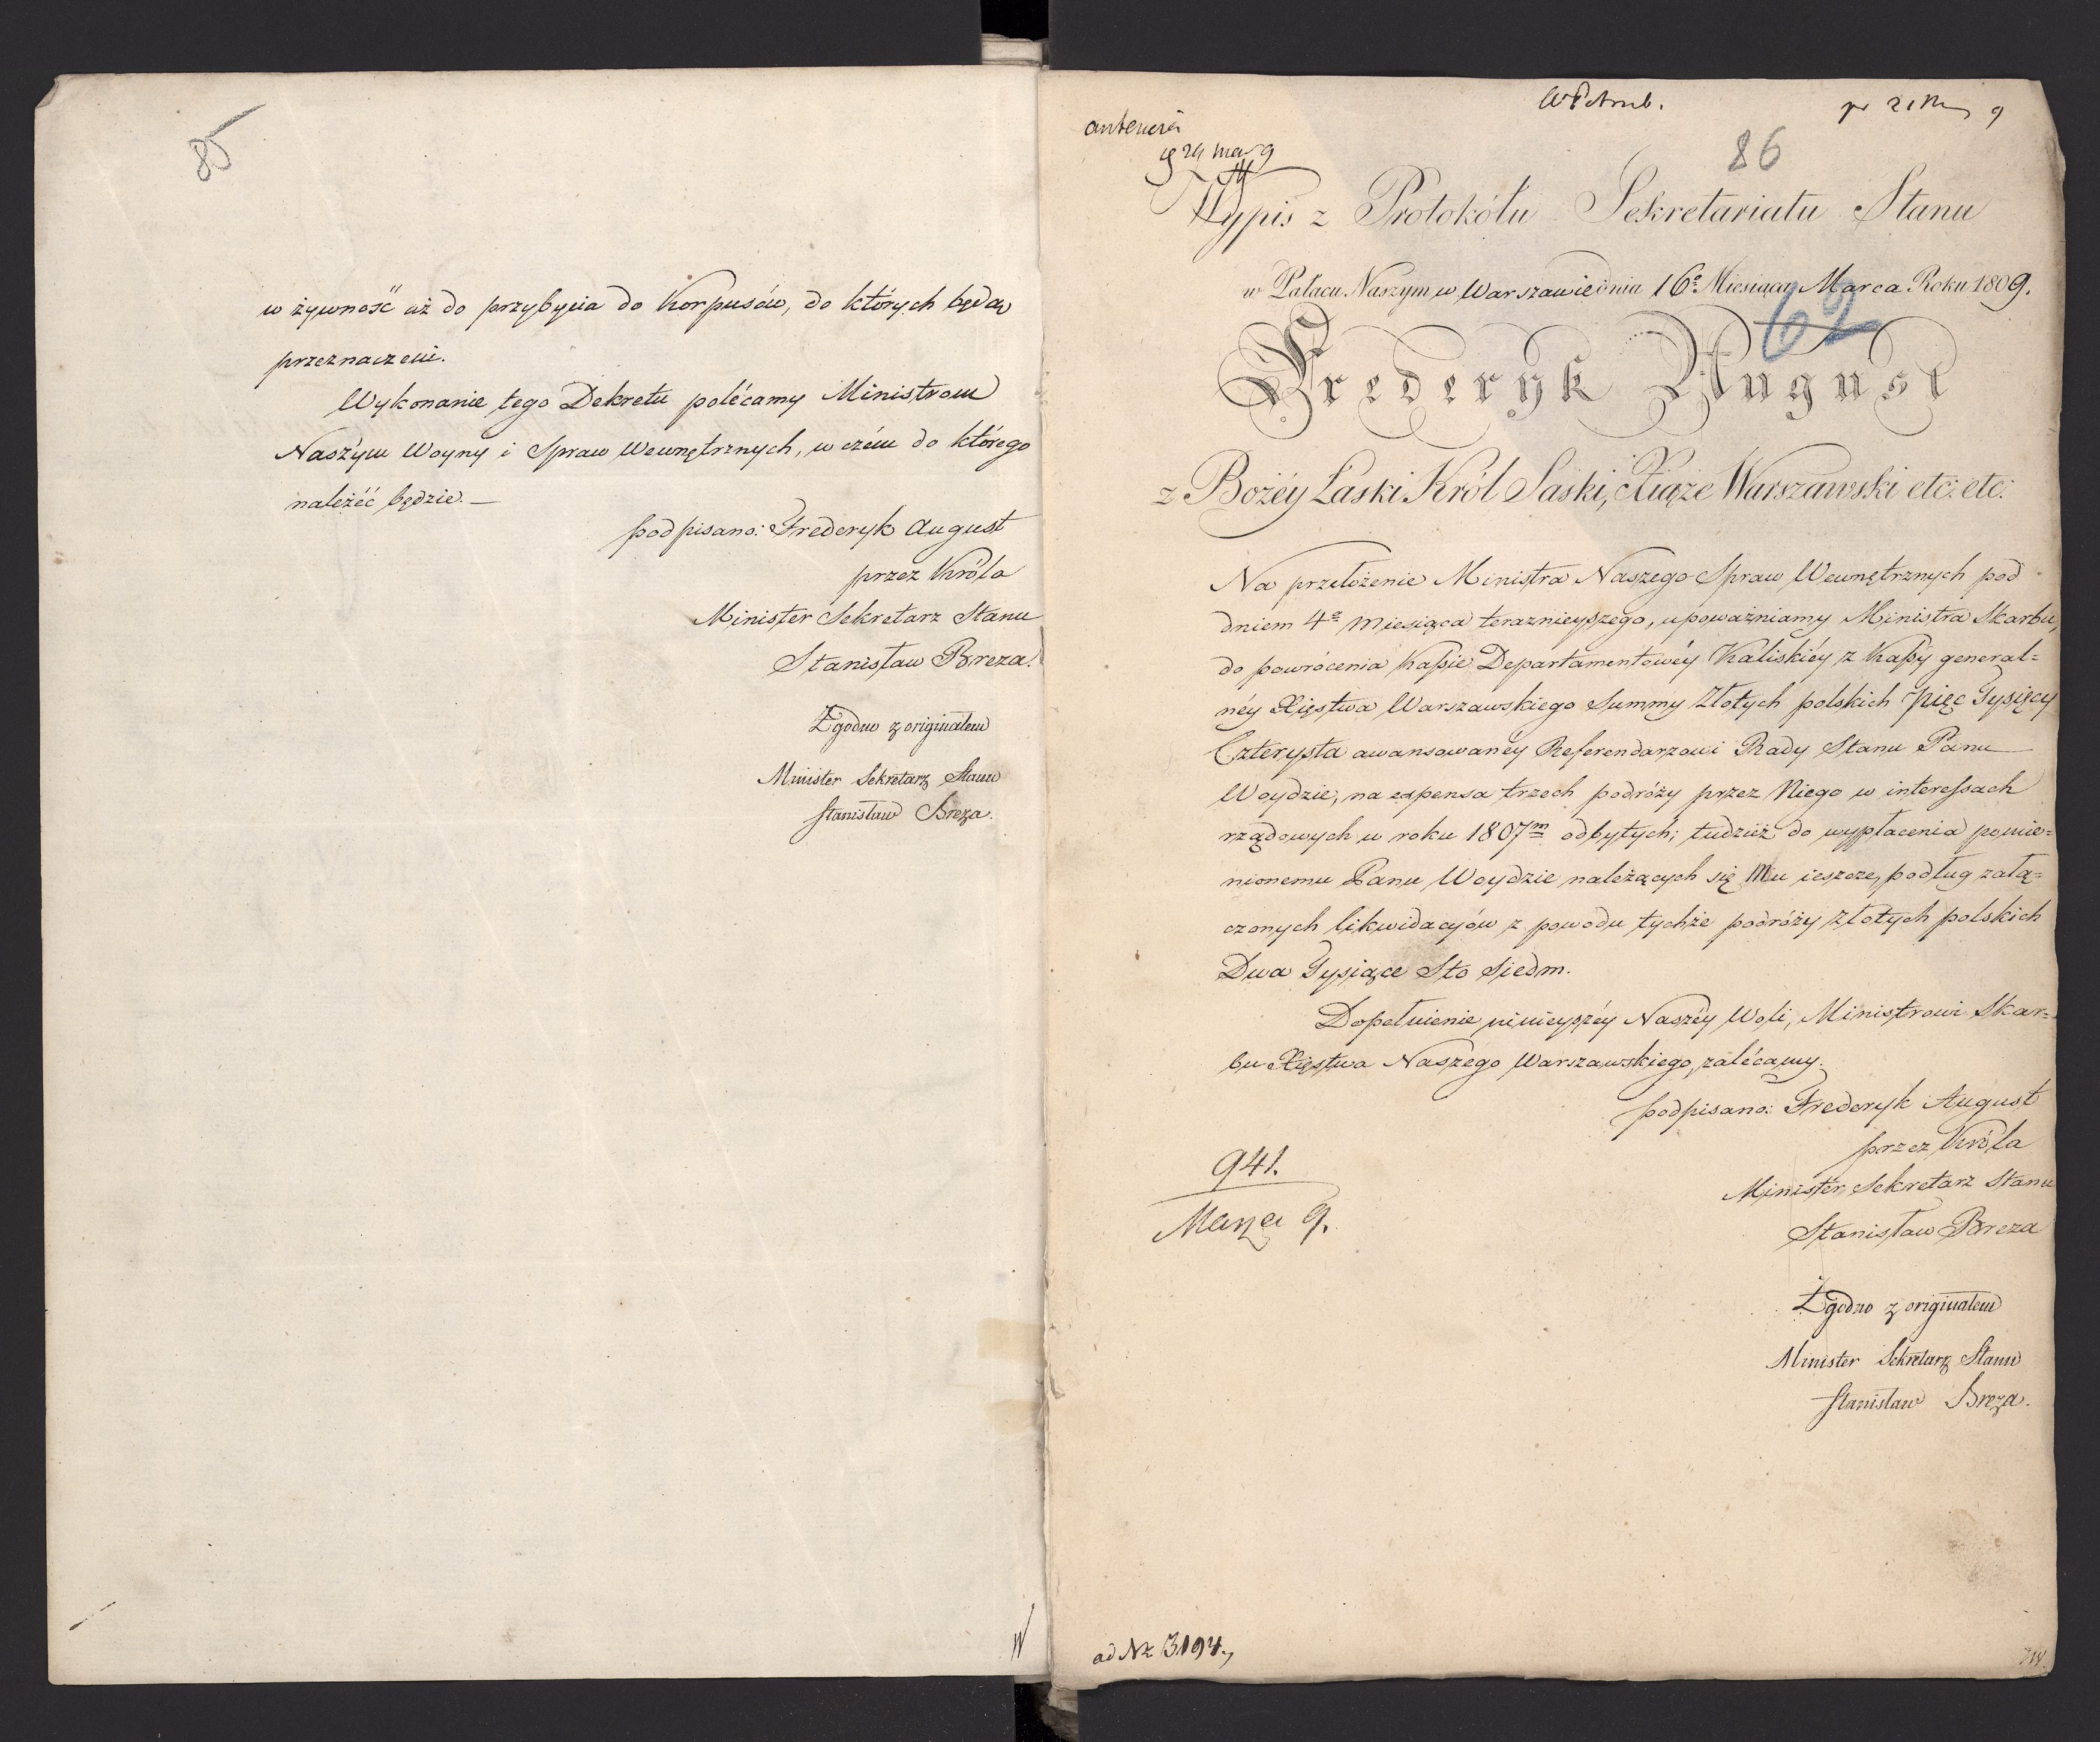 85
w żywność aż do przybycia do Korpusów, do których będą
przeznaczeni.
Wykonanie tego Dekretu polécamy Ministrom
Naszym Woyny i Spraw Wewnętrznych, w czém do którego
należéć będzie. —
podpisano: Frederyk August
przez Króla
Minister Sekretarz Stanu
Stanisław Breza.
Zgodno z originałem
Minister Sekretarz Stanu
Stanisław Breza.
86
Wypis z Protokółu Sekretariatu Stanu
w Pałacu Naszym w Warszawie dnia 16º Miesiąca Marca Roku 1809.
62
Frederyk August
z Bożéy Łaski Król Saski, Xiąże Warszawski etc: etc:
Na przełożenie Ministra Naszego Spraw Wewnętrznych pod
dniem 4º Miesiąca teraznieyszego, upoważniamy Ministra Skarbu,
do powrócenia Kassie Departamentowéy Kaliskiéy z Kassy general=
néy Xięstwa Warszawskiego Summy Złotych polskich pięc Tysięcy
Czterysta awansowanéy Referendarzowi Rady Stanu Panu
Woydzie, na expensa trzech podróży przez Niego w interessach
rządowych w roku 1807m odbytych; tudzież do wypłacenia pomie=
nionemu Panu Woydzie należących się Mu ieszcze, podług załą=
czonych likwidacyów z powodu tychże podróży złotych polskich
Dwa Tysiące Sto Siedm.
Dopełnienie ninieyszéy Naszéy Woli, Ministrowi Skar=
bu Xięstwa Naszego Warszawskiego, zalécamy.
podpisano: Frederyk August
przez Króla
941.
Minister Sekretarz Stanu
Marca 9.
Stanisław Breza
Zgodno z originałem
Minister Sekretarz Stanu
Stanisław Breza.
ad Nr 3194.